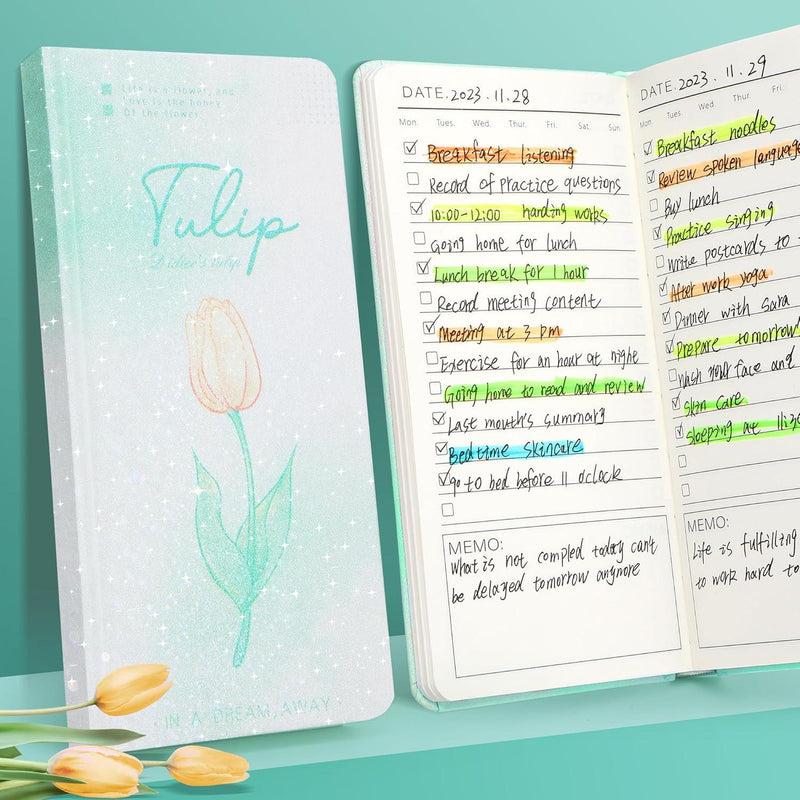 Life is a flower, and
Love is the honey
Of the flower
Tulip
IN A DREAM,AWAY
DATE. 2023.11.28
Mon. Tues. Wed. Thur. Fri. Sat. Sun.
Breakfast listening
Record of practice questions
10:00-12:00 harding works
Going home for lunch
Lunch break for 1 hour
Record meeting content
Meeting at 3 pm
Exercise for an hour at night
Going home to read and review
Last mouth's summary
Bedtime skincare
go to bed before 11 o'clock
MEMO:
What is not compled today can't
be delayed tomorrow anynore
DATE. 2023.11.29
Mon. Tues. Wed. Thur. Fri.
Breakfast noodles
Review spoken language
Buy lunch
Practice singing
Write postcards to
After work yoga
Dinner with Sara
Prepare tomorrow'
Wash your face and
Skin care
Sleeping at 11:30
MEMO:
Life is fulfilling
to work hard to